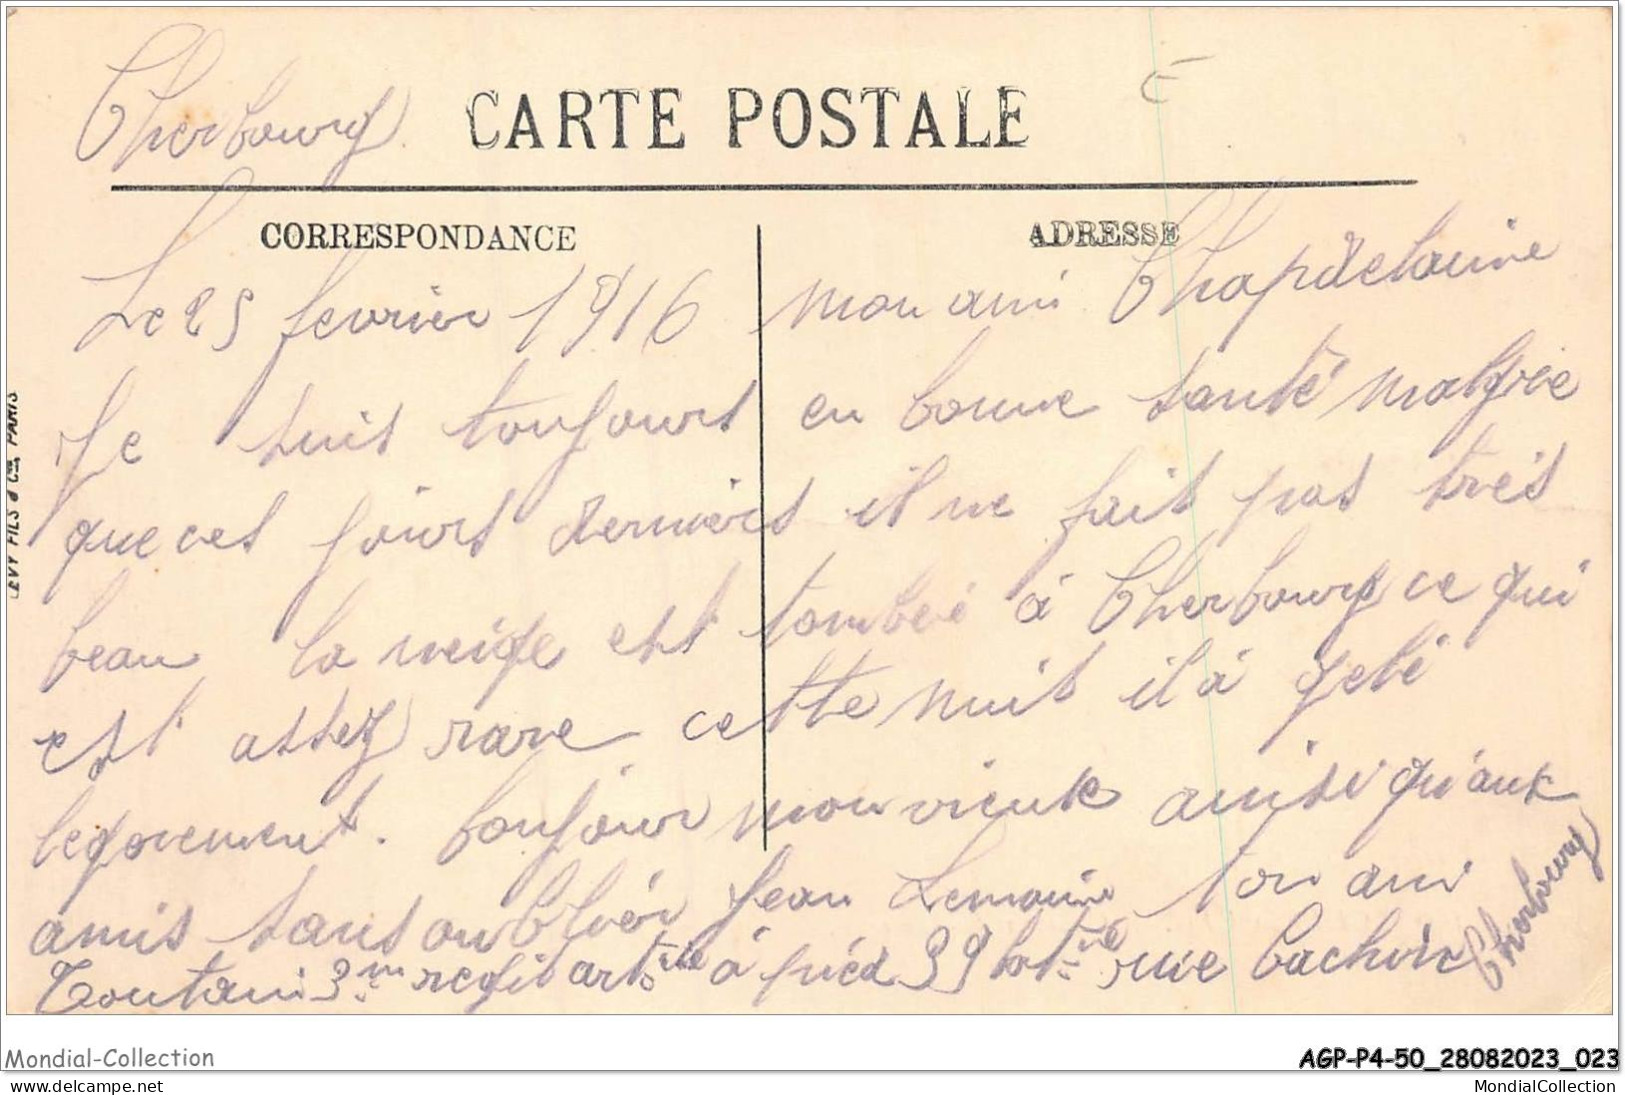 Cherbourg
CARTE POSTALE
CORRESPONDANCE
ADRESSE
Le 25 fevrier 1916 mon ami Chapdelaine
Je suis toujours en bonne santé malgrée
que ces jours derniers il ne fait pas très
beau la neige est tombée à Cherbourg ce qui
est assez rare cette nuit il à gelé
legerement. bonjour mon vieux ainsi qu'aux
amis sans oublier Jean Lemoine ton ami
3me regi art à pied 39 bat rue
Cherbourg
LEVY FILS & Cie, PARIS
Mondial-Collection
AGP-P4-50_28082023_023
www.delcampe.net
MondialCollection